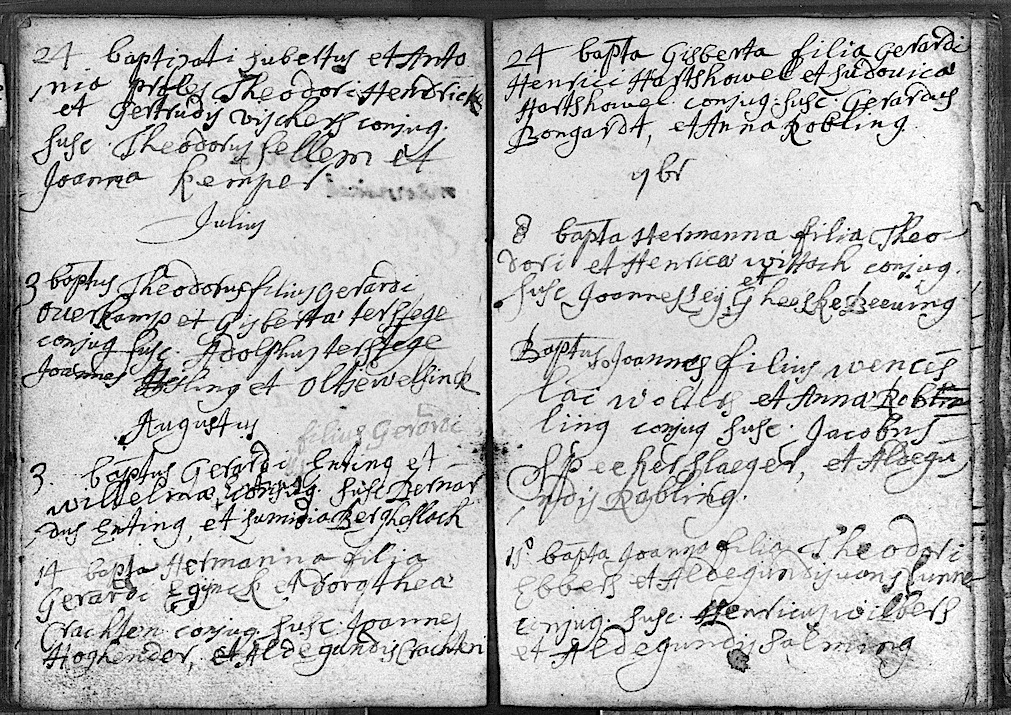 24 baptizati Lubertus et Anto
nia proles Theodori Hendrick
et Gertrudis Visckers conjug.
susc. Theodorus fellem et
Joanna Kemper
Julius
3 baptus Theodorus filius Gerardi
Overkamp et Gisberta terstege
conjug susc. Adolphus terstege
Joannes et
Augustus
filius Gerardi
3. baptus Gerardi Enting et
Wilhelma conjug. susc Bernar
dus Enting, et
14 bapta Hermanna filia
Gerardi Egginck et Dorothea
Crachten conjug susc. Joannes
Hoghender, et Aldegundis Crachten
24 bapta Gisberta filia Gerardi
Henrici Hartshowel et Ludovica
Hartshowel conjug. susc. Gerardus
Bongardt, et Anna Robling
7br
8 bapta Hermanna filia Theo
dori et Henrica conjug.
susc Joannes et
Baptus Joannes filius Wences
lai Wolters et Anna Robl
ling conjug susc. Jacobus
Speckerslaeger, et Aldegu
ndis Rabling.
bapta Joanna filia Theodori
Ebbers et Aldegundis van
conjug. susc. Henricus Wilbers
et Aldegundis Salming